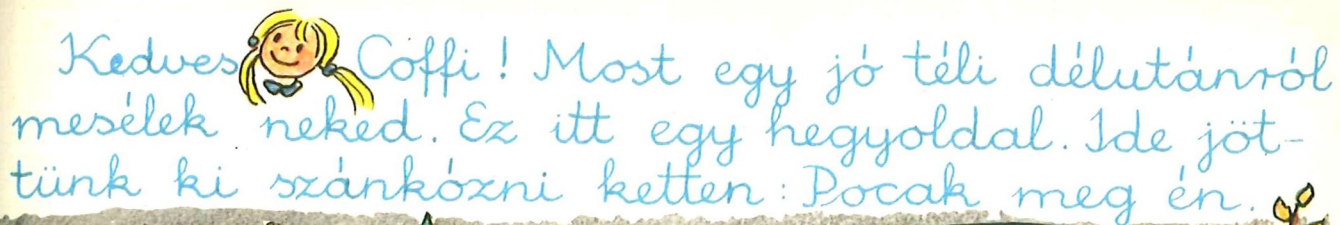 Kedves Coffi! Most egy jó téli délutánról
mesélek neked. Ez itt egy hegyoldal. Ide jöt-
tünk ki szánkózni ketten: Pocak meg én.